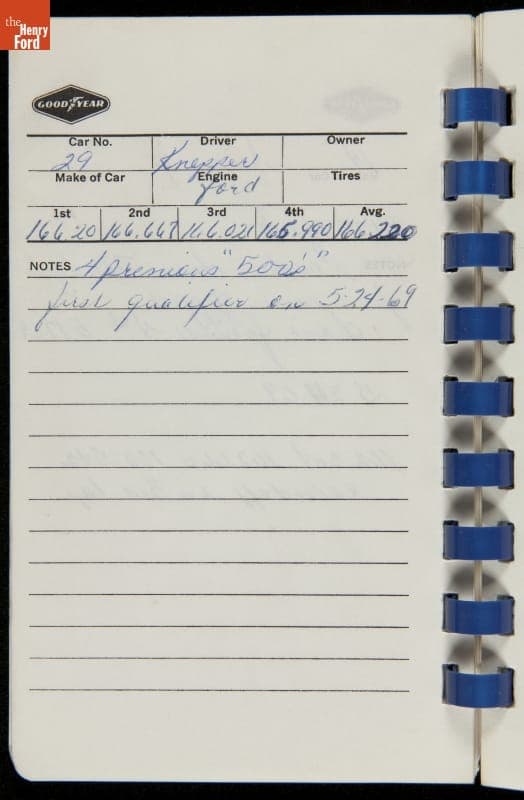 the
Henry
Ford
GOODYEAR
Car No. Driver Owner
29 Knepper
Make of Car Engine Tires
Ford
1st 2nd 3rd 4th Avg.
166.20 166.667 166.021 165.990 166.220
NOTES 4 previous "500's"
first qualifier on 5-24-69